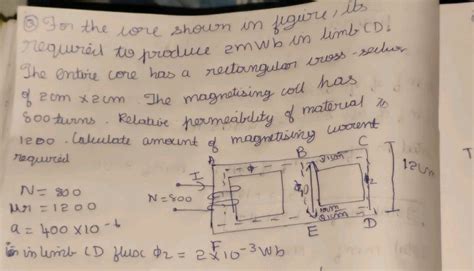 ③ For the core shown in figure, its
required to produce 2mWb in limb CD.
The entire core has a rectangular cross-section
of 2cm x 2cm. The magnetising coil has
800 turns. Relative permeability of material is
1200. Calculate amount of magnetising current
required
N = 800
μr = 1200
a = 400 x 10⁻⁶
in limb CD flux ϕ2 = 2 x 10⁻³ Wb
I
N=800
ϕ
B
C
ϕ2
12cm
F
E
D